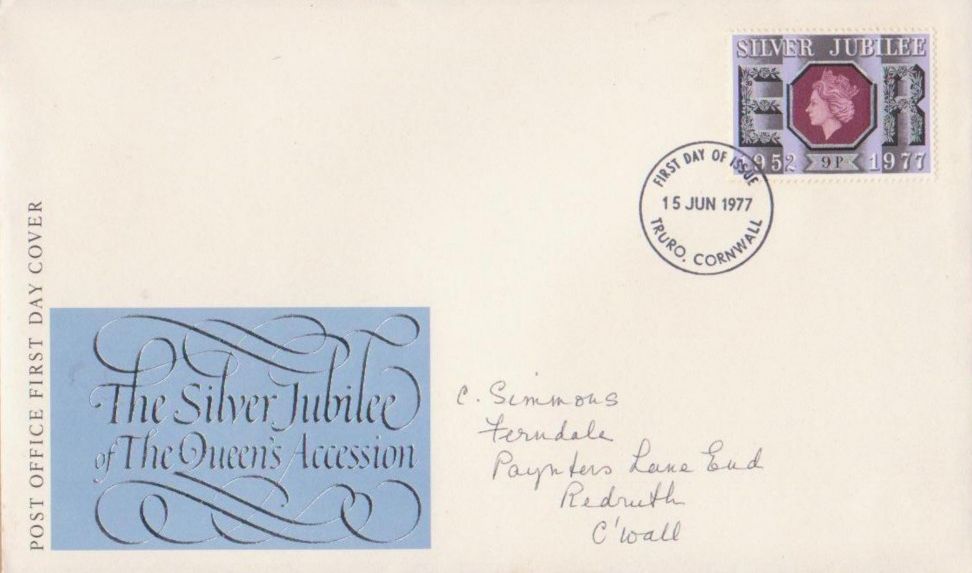 SILVER JUBILEE
E R
1952 9P 1977
FIRST DAY OF ISSUE
15 JUN 1977
TRURO, CORNWALL
POST OFFICE FIRST DAY COVER
The Silver Jubilee
of The Queen's Accession
C. Simmons
Ferndale
Paynters Lane End
Redruth
C'wall